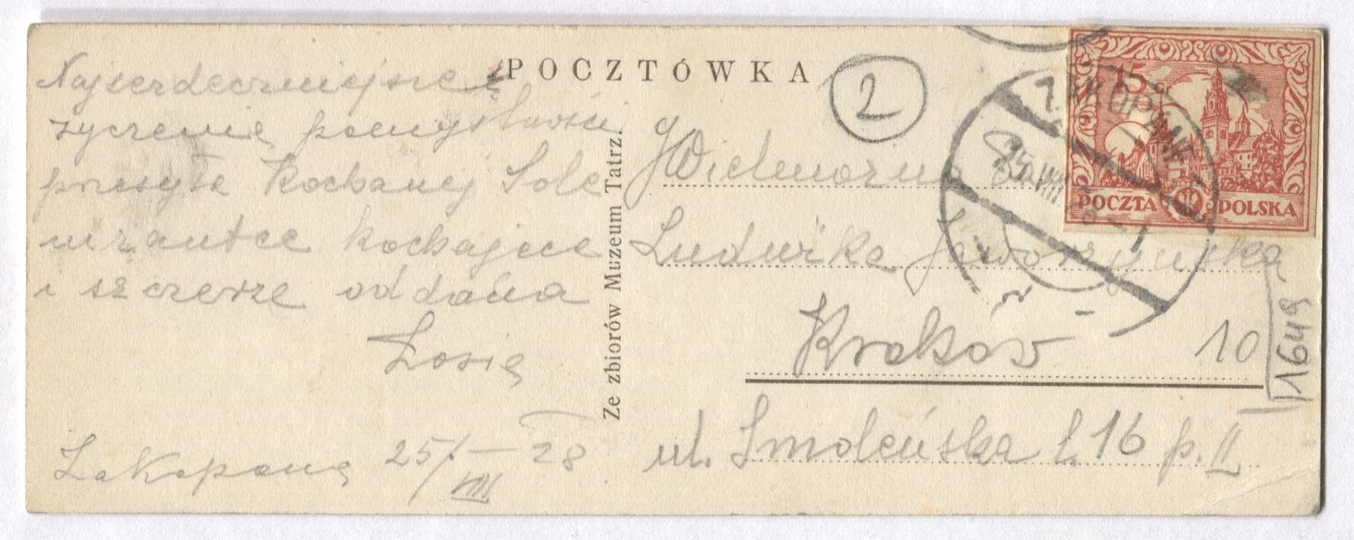 POCZTÓWKA
2
Najserdeczniejsze
życzenia pomyślności
przesyła Kochanej Pole
kochająca
i szczerze oddana
Zosia
Zakopane 25/VIII 28
Ze zbiorów Muzeum Tatrz.
JWielmożna
Ludwika Jaworzyńska
Kraków
10
ul. Smoleńska l. 16 p. II
1649
15 gr
POCZTA POLSKA
ZAKOPANE
25.VIII